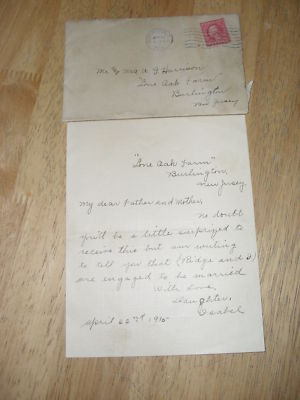 Mr & Mrs A J Harrison
"Lone Oak Farm"
Burlington
New Jersey
"Lone Oak Farm"
Burlington,
New Jersey
My dear Father and Mother,
No doubt
you'll be a little surprized to
receive this but am writing
to tell you that (Ridge and I)
are engaged to be married
With Love,
Daughter,
Isabel
April 22nd 1915